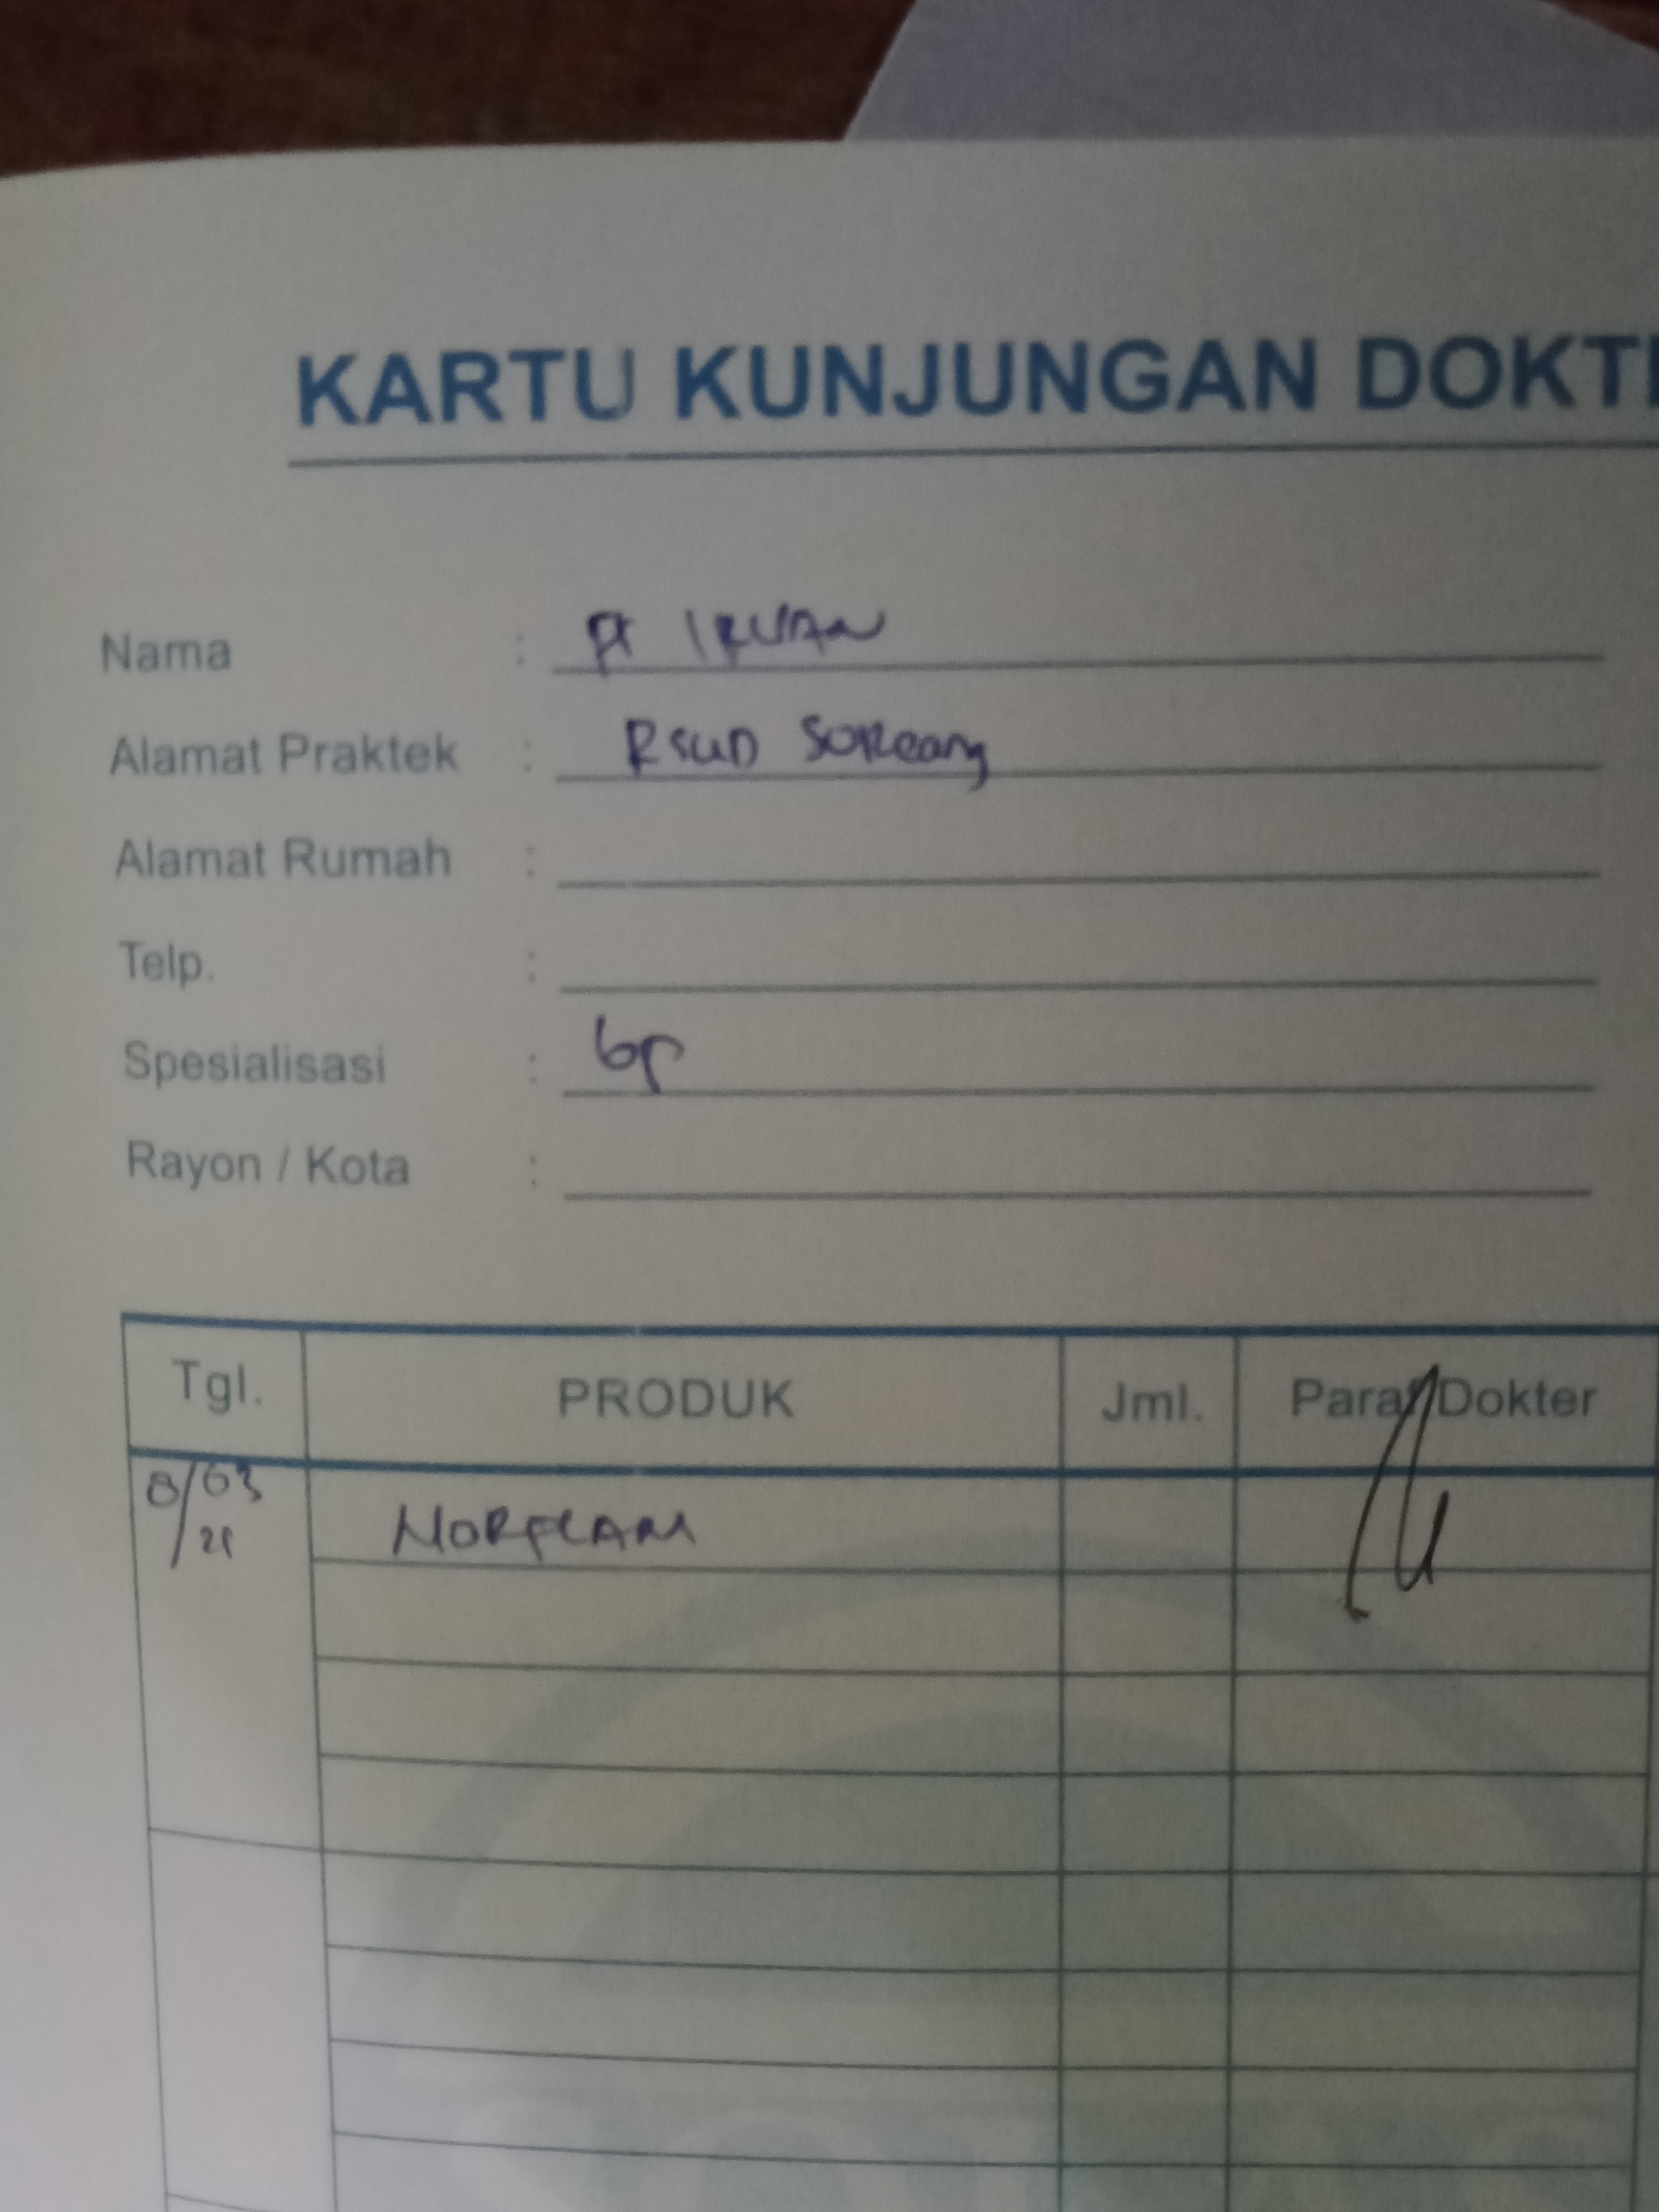 KARTU KUNJUNGAN DOKT
Nama : IRVAN
Alamat Praktek : RSUD Soreang
Alamat Rumah :
Telp. :
Spesialisasi : Gp
Rayon / Kota :
Tgl. PRODUK Jml. Paraf Dokter
8/03/21 NORFLAM